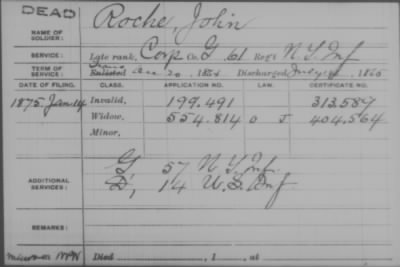 DEAD
NAME OF SOLDIER: Roche, John
SERVICE: Late rank, Corp Co. G, 61 Reg't N.Y. Inf
TERM OF SERVICE: Enlisted 20, 1864 Discharged July 1865
DATE OF FILING. CLASS. APPLICATION NO. LAW. CERTIFICATE NO.
1875 Jan. 14 Invalid, 199.491 313.589
Widow, 554.814 O J 404.564
Minor,
ADDITIONAL SERVICES: G 57 N.Y. Inf.
D, 14 U.S. Inf
REMARKS:
Died , 1 , at